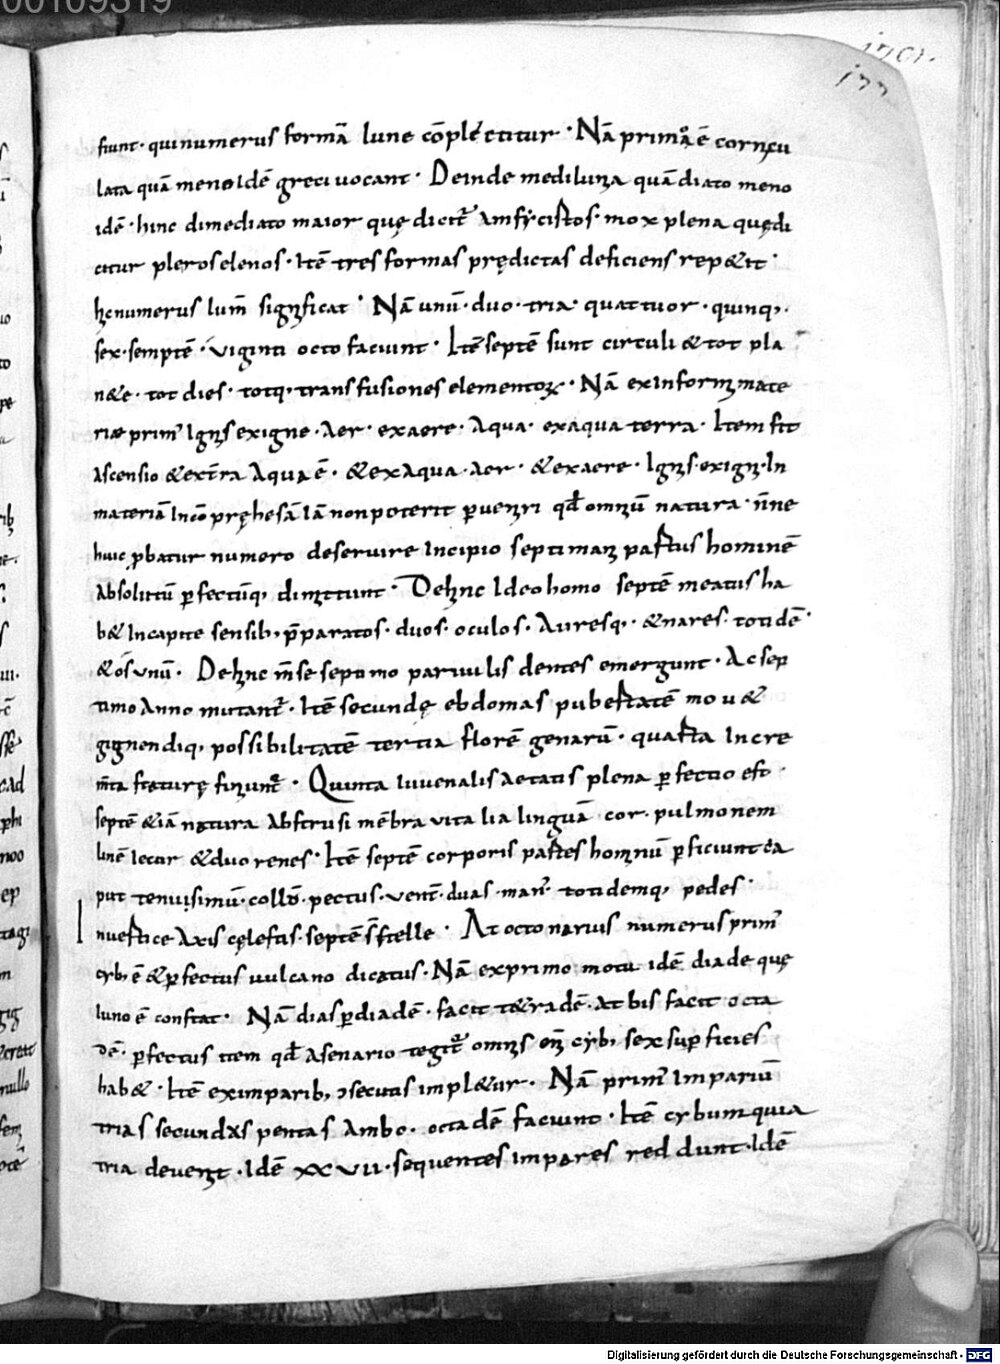 00109319
170r.
177
fiunt· qui numerus formā lune cōplectitur · Nā primū ē cornicu
lata quā menoidē greci vocant · Deinde mediluna quā diato meno
idē · hinc dimediato maior quę dicit᷒ Amfycistos· mox plena quędi
citur pleroselenos · Itē tres formas prędictas deficiens rep&it ·
hic numerus lum̄ significat · Nā unū · duo · tria · quattuor · quinq;·
sex · septē · viginti octo faciunt · Itē septē sunt circuli & tot pla
n&e · tot dies · totq; · transfusiones elementoꝝ · Nā exInformi mate
riæ prim̄ Ignis exigne · Aer · exaere · Aqua · exaqua terra · Item fit
Ascensio & ext̄ra Aqua ē · & exAqua · Aer · & exaere · Ignis · exigni · In
materiā Incōpręhesā Iā non poterit ꝑuenire qđ omniū natura · n̄ne
huic ꝓbatur numero deservire Incipio septimani pastus hominē
Absolutū ꝑfectūq; dimittunt · Dehinc Ideo homo septē meatus ha
b& Incapite sensib; p̄paratos · duos · oculos · Auresq; · & nares · totidē ·
& os unū · Dehinc m̄se septimo parvulis dentes emergunt · Ac sep
timo Anno mutant᷒ · Itē secundę ebdomas pubertatē mou&
gignendiq; possibilitatē tertia florē genarū · quarta Incre
m̄ta staturę finiunt᷒ · Quinta Iuvenalis Aetatis plena ꝑfectio est ·
septē & iā natura Abstrusi mēbra vitalia linguā cor · pulmonem
linē Iecur & duo renes · Itē septē corporis partes hominū ꝑficiunt ca
put tenuisimū · collū · pectus · vent̄ · duas · man᷒ · totidemq; pedes ·
Invertice Axis cęlestis · septē s̄ stelle · At octonarius numerus prim᷒
cyb; ē & ꝑfectus vulcano dicatus · Nā exprimo motu idē diade quę
Iuno ē constat · Nā dias ꝑ diadē · facit t&radē · At bis facit octa
dē · ꝑfectus item qđ Asenario tegit᷒ omnis eni cyb; sex suꝑficies
hab& · Itē eximparib; ɔsecutis impl&ur · Nā prim̄ Impariū
trias secundas pentas Ambo · octadē faciunt · Itē cybum quia
tria devenit · Idē xxvii · sequentes impares reddunt · Idē
Digitalisierung gefördert durch die Deutsche Forschungsgemeinschaft · DFG